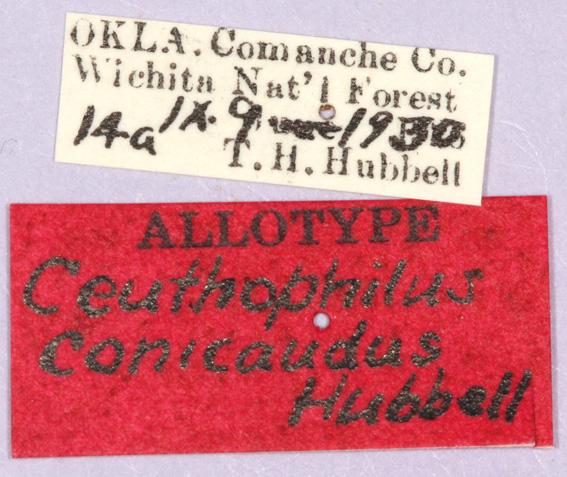 OKLA. Comanche Co.
Wichita Nat'l Forest
14a IX. 9 1930
T. H. Hubbell
ALLOTYPE
Ceuthophilus
conicaudus
Hubbell